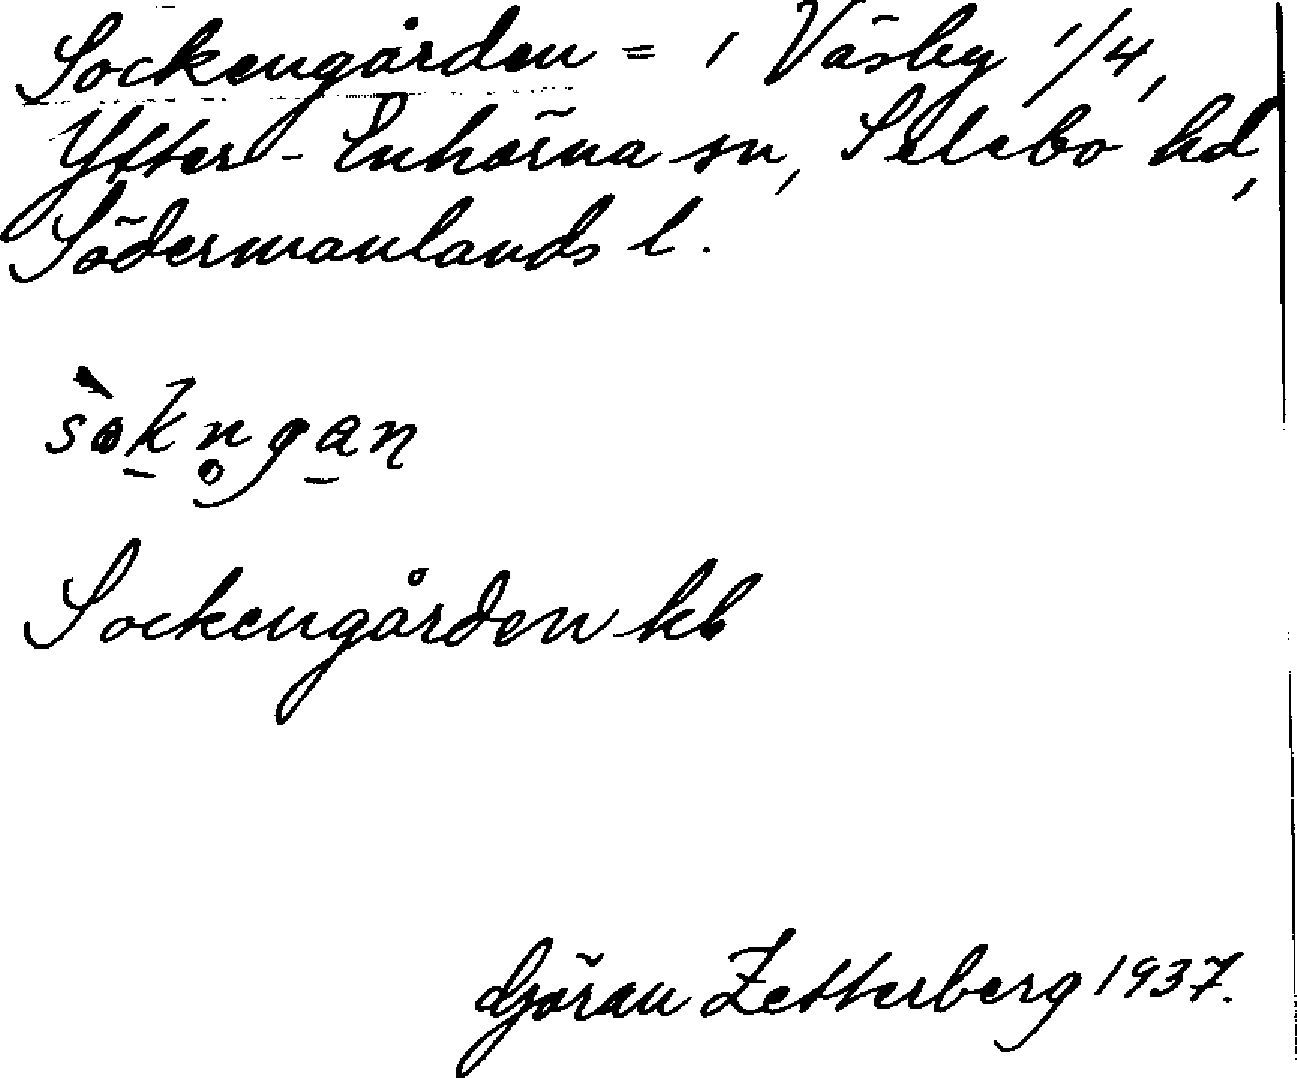 Sockengården = 1 Väsby 1/4,
Ytter-Enhörna sn, Selebo hd,
Södermanlands l.
sòkn̥gan
Sockengården kb
Göran Zetterberg 1937.